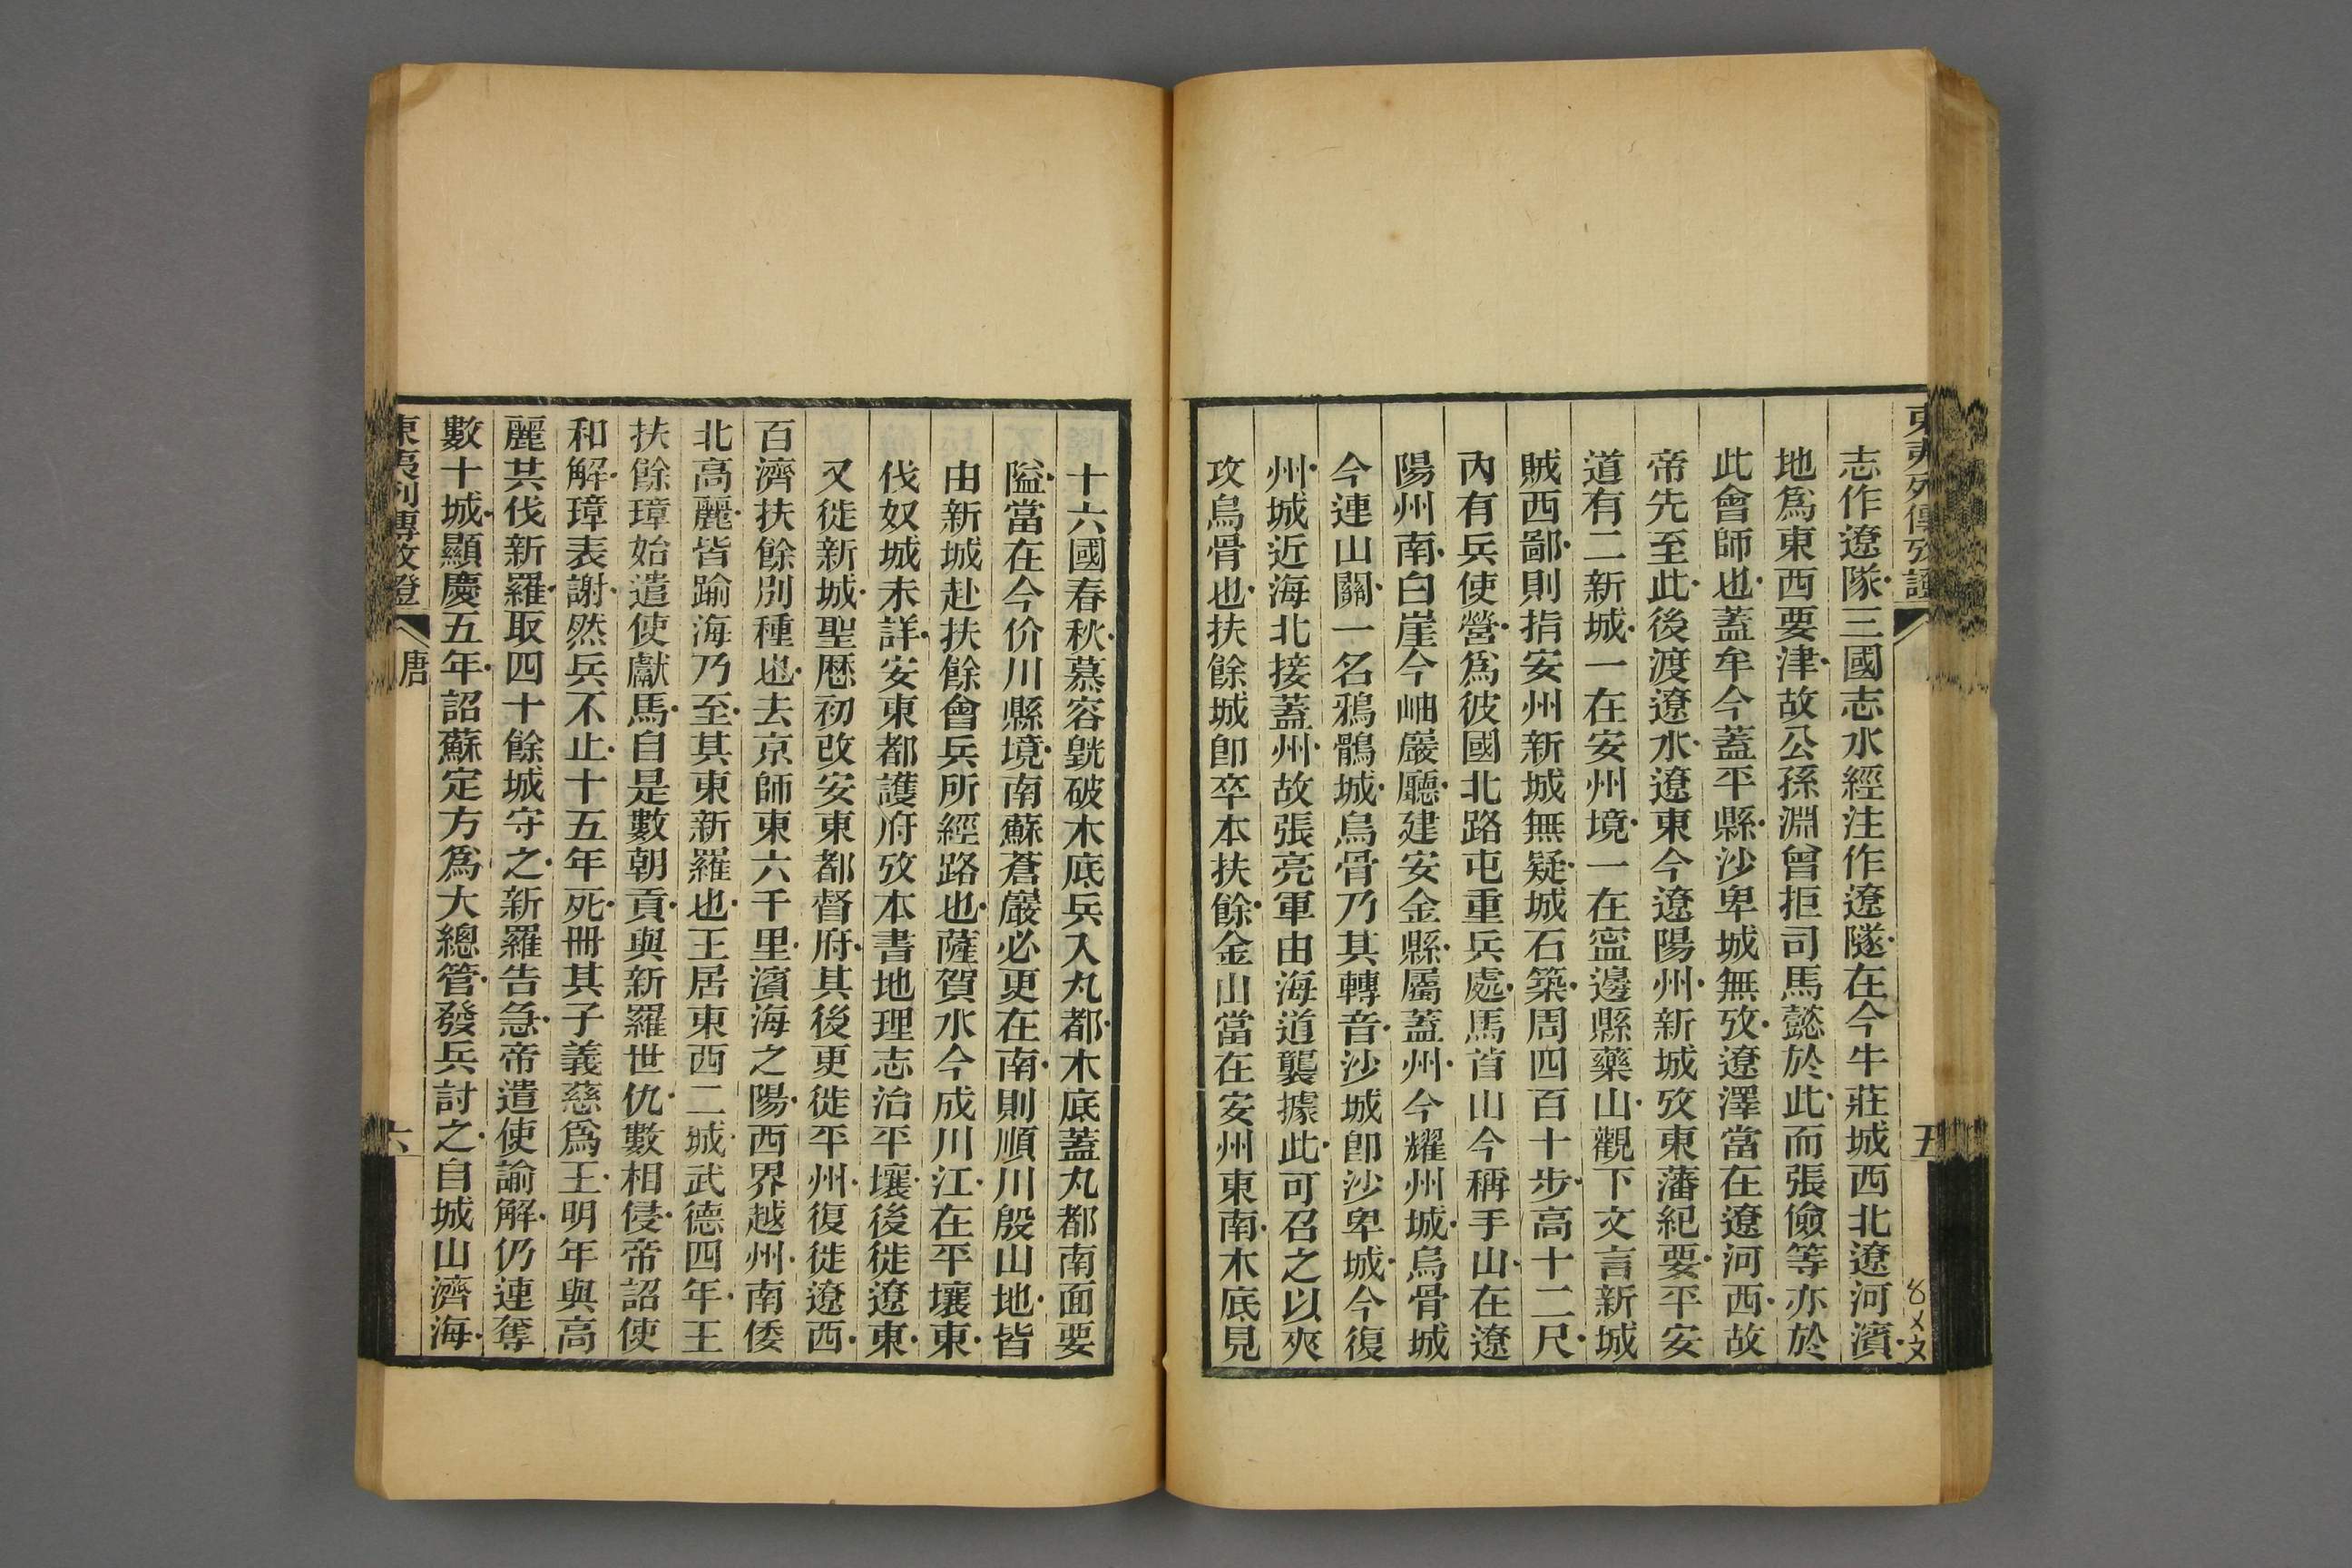 東夷列傳攷證
五
志作遼隊三國志水經注作遼隧在今牛莊城西北遼河濱
地爲東西要津故公孫淵曾拒司馬懿於此而張儉等亦於
此會師也蓋牟今蓋平縣沙卑城無攷遼澤當在遼河西故
帝先至此後渡遼水遼東今遼陽州新城攷東藩紀要平安
道有二新城一在安州境一在寍邊縣藥山觀下文言新城
賊西鄙則指安州新城無疑城石築周四百十步高十二尺
內有兵使營爲彼國北路屯重兵處馬首山今稱手山在遼
陽州南白崖今岫巖廳建安金縣屬蓋州今耀州城烏骨城
今連山關一名鴉鶻城烏骨乃其轉音沙城卽沙卑城今復
州城近海北接蓋州故張亮軍由海道襲據此可召之以夾
攻烏骨也扶餘城卽卒本扶餘金山當在安州東南木底見
十六國春秋慕容皝破木底兵入丸都木底蓋丸都南面要
隘當在今价川縣境南蘇蒼巖必更在南則順川殷山地皆
由新城赴扶餘會兵所經路也薩賀水今成川江在平壤東
伐奴城未詳安東都護府攷本書地理志治平壤後徙遼東
又徙新城聖曆初改安東都督府其後更徙平州復徙遼西
百濟扶餘別種也去京師東六千里濱海之陽西界越州南倭
北高麗皆踰海乃至其東新羅也王居東西二城武德四年王
扶餘璋始遣使獻馬自是數朝貢與新羅世仇數相侵帝詔使
和解璋表謝然兵不止十五年死冊其子義慈爲王明年與高
麗共伐新羅取四十餘城守之新羅告急帝遣使諭解仍連奪
數十城顯慶五年詔蘇定方爲大總管發兵討之自城山濟海
東夷列傳攷證
唐
六